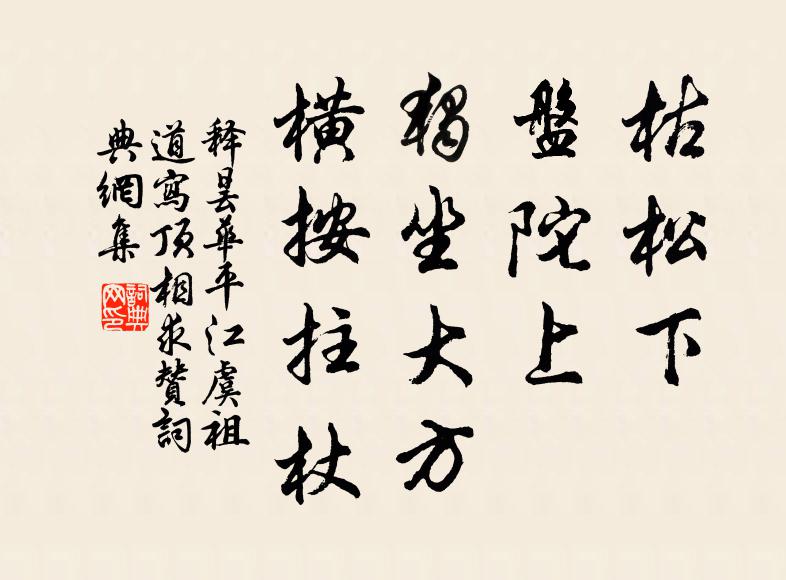 枯松下
盤陀上
獨坐大方
橫按拄杖
释曇華平江虞祖
道寫頂相求贊詞
典網集
詞典
网印